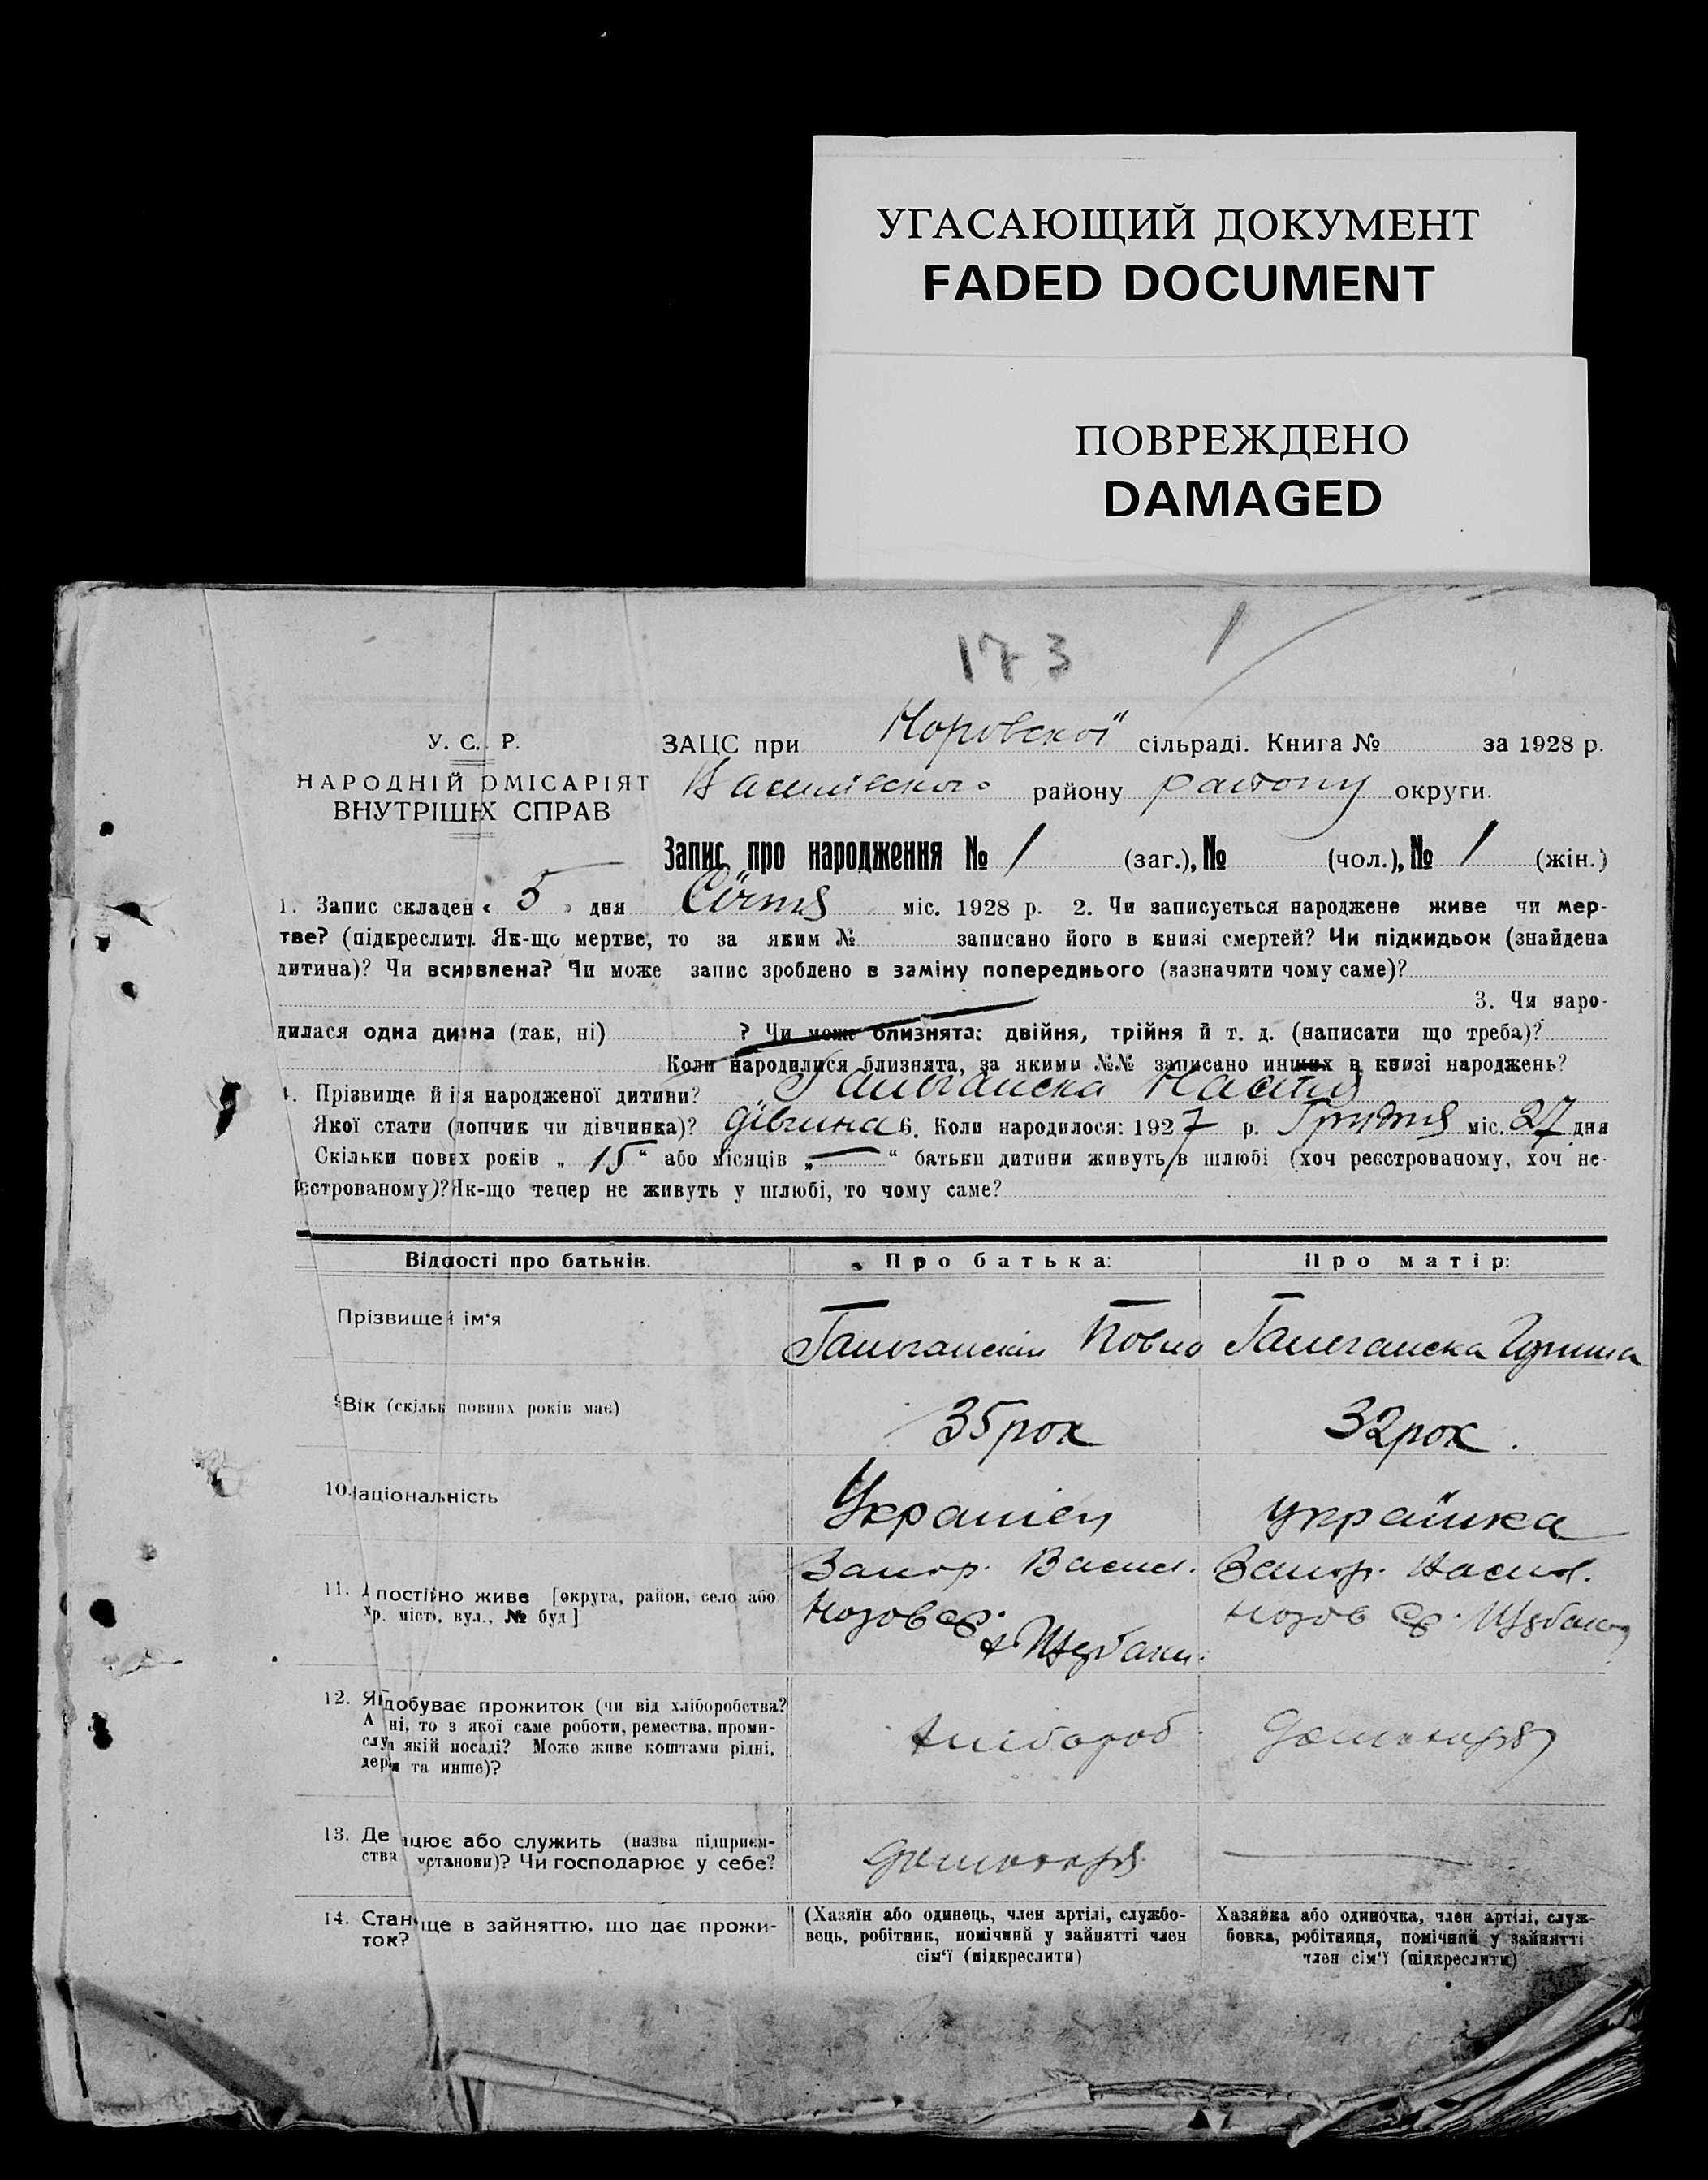 УГАСАЮЩИЙ ДОКУМЕНТ
FADED DOCUMENT
ПОВРЕЖДЕНО
DAMAGED
173 1
У. С. Р.
НАРОДНІЙ ОМІСАРІЯТ
ВНУТРІШНІХ СПРАВ
ЗАЦС при сільраді. Книга № за 1928 р.
району округи.
Запис про народження № 1 (заг.), № (чол.), № 1 (жін.)
1. Запис складен « 5 » дня Січня міс. 1928 р. 2. Чи записується народжене живе чи мер-
тве? (підкреслити. Як-що мертве, то за яким № записано його в книзі смертей? Чи підкидьок (знайдена
дитина)? Чи всиновлена? Чи може запис зроблено в заміну попереднього (зазначити чому саме)?
3. Чи наро-
дилася одна дитина (так, ні) ? Чи може близнята: двійня, трійня й т. д. (написати що треба)?
Коли народилися близнята, за якими №№ записано инших в книзі народжень?
4. Прізвище й ім'я народженої дитини? Настя
Якої стати (хлопчик чи дівчинка)? дівчина 6. Коли народилося: 1927 р. Грудня міс. 27 дня
Скільки повних років „ 15 “ або місяців „ — “ батьки дитини живуть в шлюбі (хоч реєстрованому, хоч не-
реєстрованому)? Як-що тепер не живуть у шлюбі, то чому саме?
Відомості про батьків. Про батька: Про матір:
Прізвище і ім'я
Вік (скільки повних років має) 35 рок 32 рок.
10. Національність Украінец українка
11. Де постійно живе [округа, район, село або Запор. Васил. Запор.
хр. місто, вул., № буд]
12. Як добуває прожиток (чи від хліборобства?
А ні, то з якої саме роботи, ремества, проми-
слу, якій посаді? Може живе коштами рідні,
держави та инше)? Хлібороб
13. Де працює або служить (назва підприєм-
ства установи)? Чи господарює у себе?
14. Становище в зайняттю, що дає прожи-
ток?
(Хазяїн або одинець, член артілі, службо-
вець, робітник, помічний у зайнятті член
сім'ї (підкреслити)
Хазяйка або одиночка, член артілі, служ-
бовка, робітниця, помічний у зайнятті
член сім'ї (підкреслити)